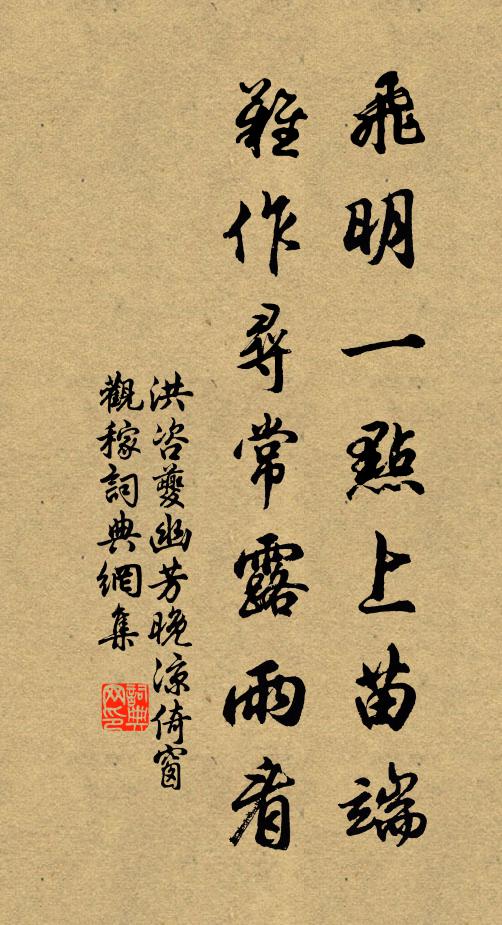 飛明一點上苗端
難作尋常露雨看
洪咨夔幽芳晚涼倚窗
觀稼詞典網集
詞典
网印